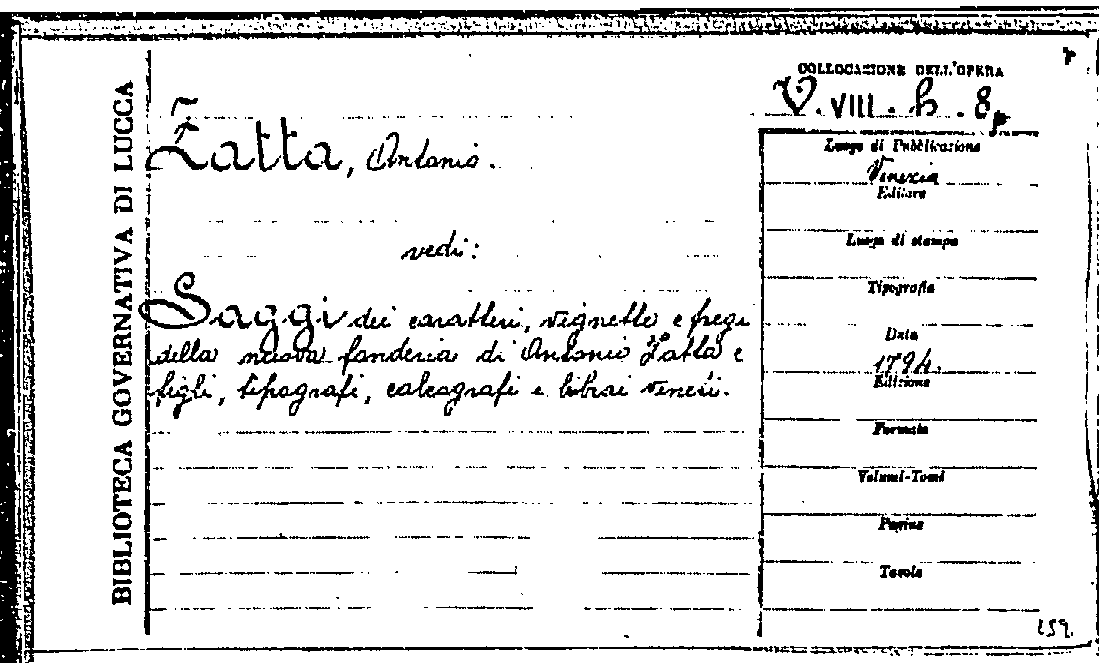 BIBLIOTECA GOVERNATIVA DI LUCCA
Zatta, Antonio.
vedi:
Saggi dei caratteri, vignette e fregi
della nuova fonderia di Antonio Zatta e
figli, tipografi, calcografi e librai veneti.
COLLOCAZIONE DELL'OPERA
V. VIII. h. 8
Luogo di Pubblicazione
Venezia
Editore
Luogo di stampa
Tipografia
Data
1794.
Edizione
Formato
Volumi-Tomi
Pagine
Tavole